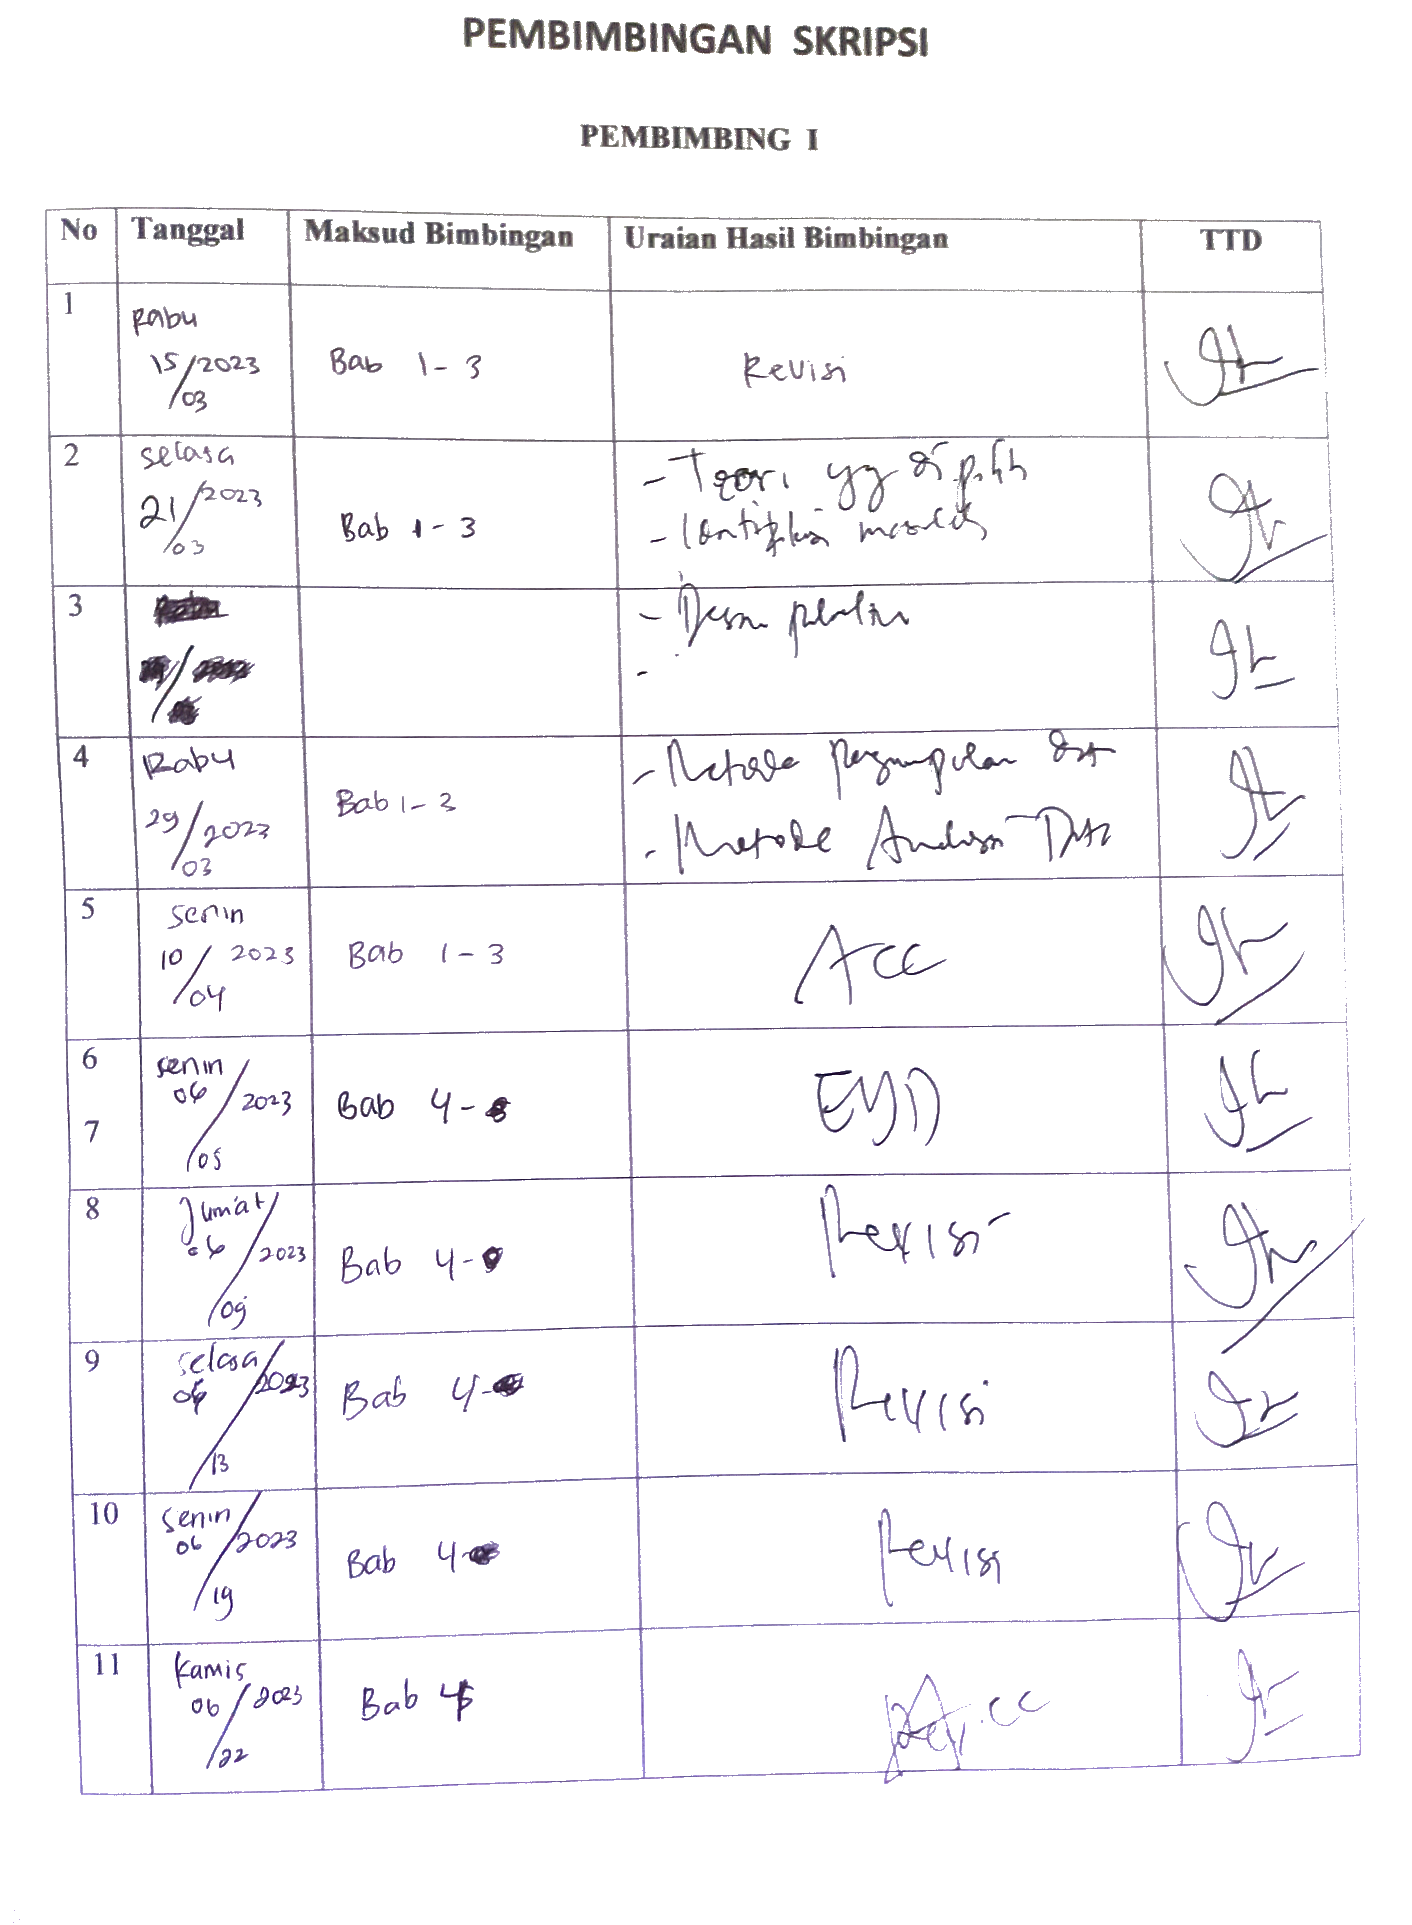 PEMBIMBINGAN SKRIPSI
PEMBIMBING I
No Tanggal Maksud Bimbingan Uraian Hasil Bimbingan TTD
1
Rabu
15/2023
/03
Bab 1-3
Revisi
2
selasa
21/2023
/03
Bab 1-3
- Teori yg dipilih
- Identifikasi masalah
3
- Desain penelitian
-
4
Rabu
29/2023
/03
Bab 1-3
- Metode pengumpulan data
- Metode Analisis Data
5
Senin
10/2023
/04
Bab 1-3
ACC
6
7
senin
06/2023
/05
Bab 4-
EYD
8
Jumat
06/2023
/09
Bab 4-
Revisi
9
selasa
06/2023
/13
Bab 4-
Revisi
10
Senin
06/2023
/19
Bab 4-
Revisi
11
Kamis
06/2023
/22
Bab 4
Acc